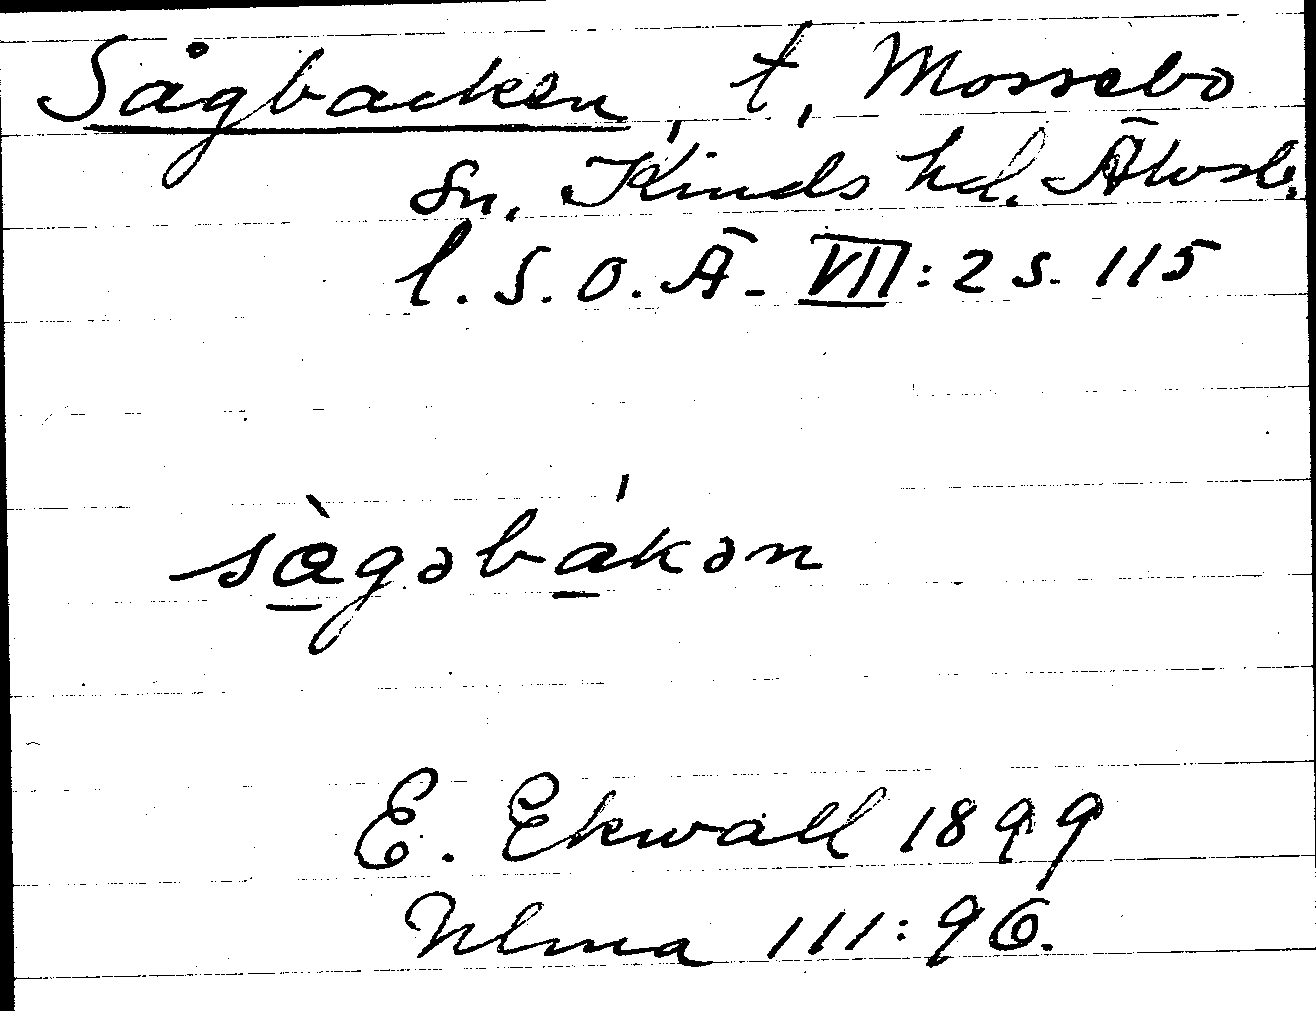 Sågbacken, t, Mossebo
sn. Kinds hd. Älvsb.
l. S. O. Ä. VII: 2 s. 115
sàgəbákən
E. Ekwall 1899
Ulma 111:96.